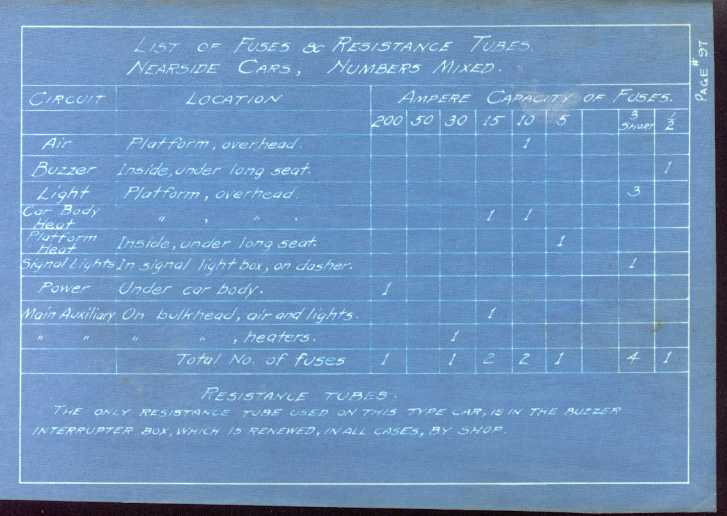 LIST OF FUSES & RESISTANCE TUBES.
NEARSIDE CARS, NUMBERS MIXED.
PAGE # 97
CIRCUIT LOCATION AMPERE CAPACITY OF FUSES.
200 50 30 15 10 5 3 SHORT 1/2
Air Platform, overhead. 1
Buzzer Inside, under long seat. 1
Light Platform, overhead. 3
Car Body Heat " , " . 1 1
Platform Heat Inside, under long seat. 1
Signal Lights In signal light box, on dasher. 1
Power Under car body. 1
Main Auxiliary On bulkhead, air and lights. 1
" " " " , heaters. 1
Total No. of fuses 1 1 2 2 1 4 1
RESISTANCE TUBES.
THE ONLY RESISTANCE TUBE USED ON THIS TYPE CAR, IS IN THE BUZZER
INTERRUPTER BOX, WHICH IS RENEWED, IN ALL CASES, BY SHOP.